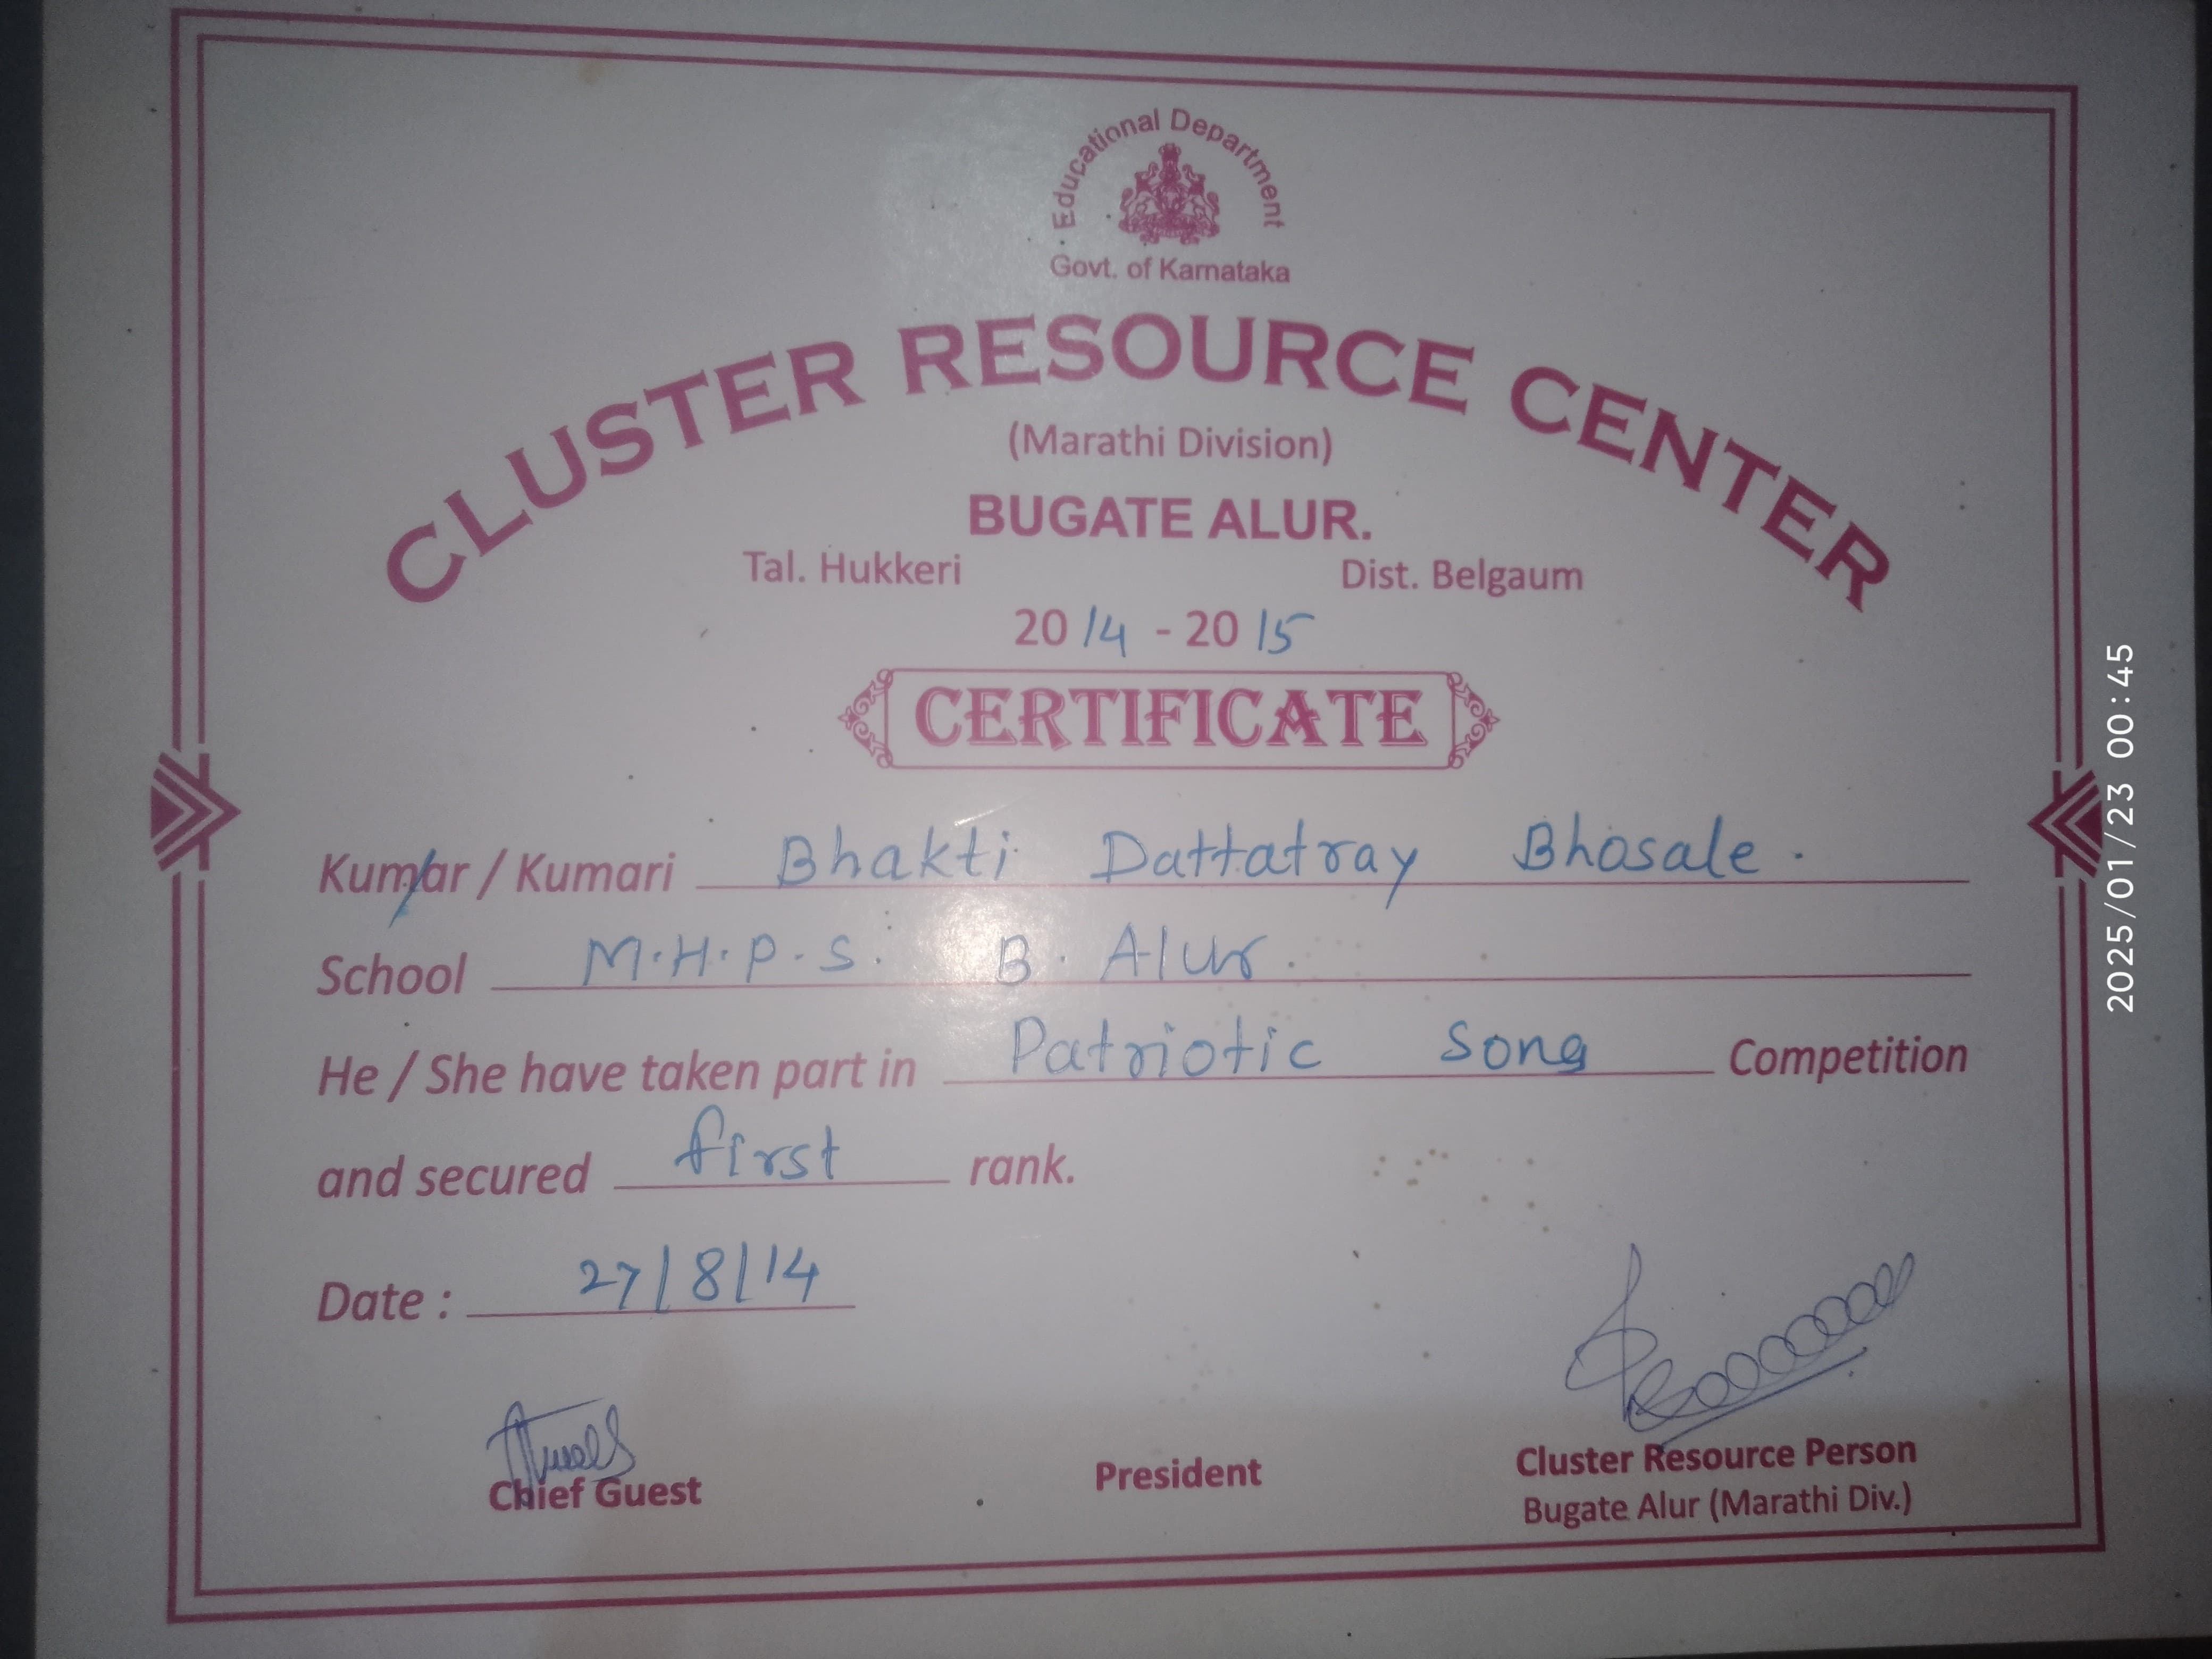 Educational Department
Govt. of Karnataka
CLUSTER RESOURCE CENTER
(Marathi Division)
BUGATE ALUR.
Tal. Hukkeri Dist. Belgaum
2014 - 2015
CERTIFICATE
Kumar / Kumari Bhakti Dattatray Bhosale.
School M.H.P.S. B. Alur.
He / She have taken part in Patriotic Song Competition
and secured first rank.
Date : 27/8/14
Chief Guest
President
Cluster Resource Person
Bugate Alur (Marathi Div.)
2025/01/23 00:45